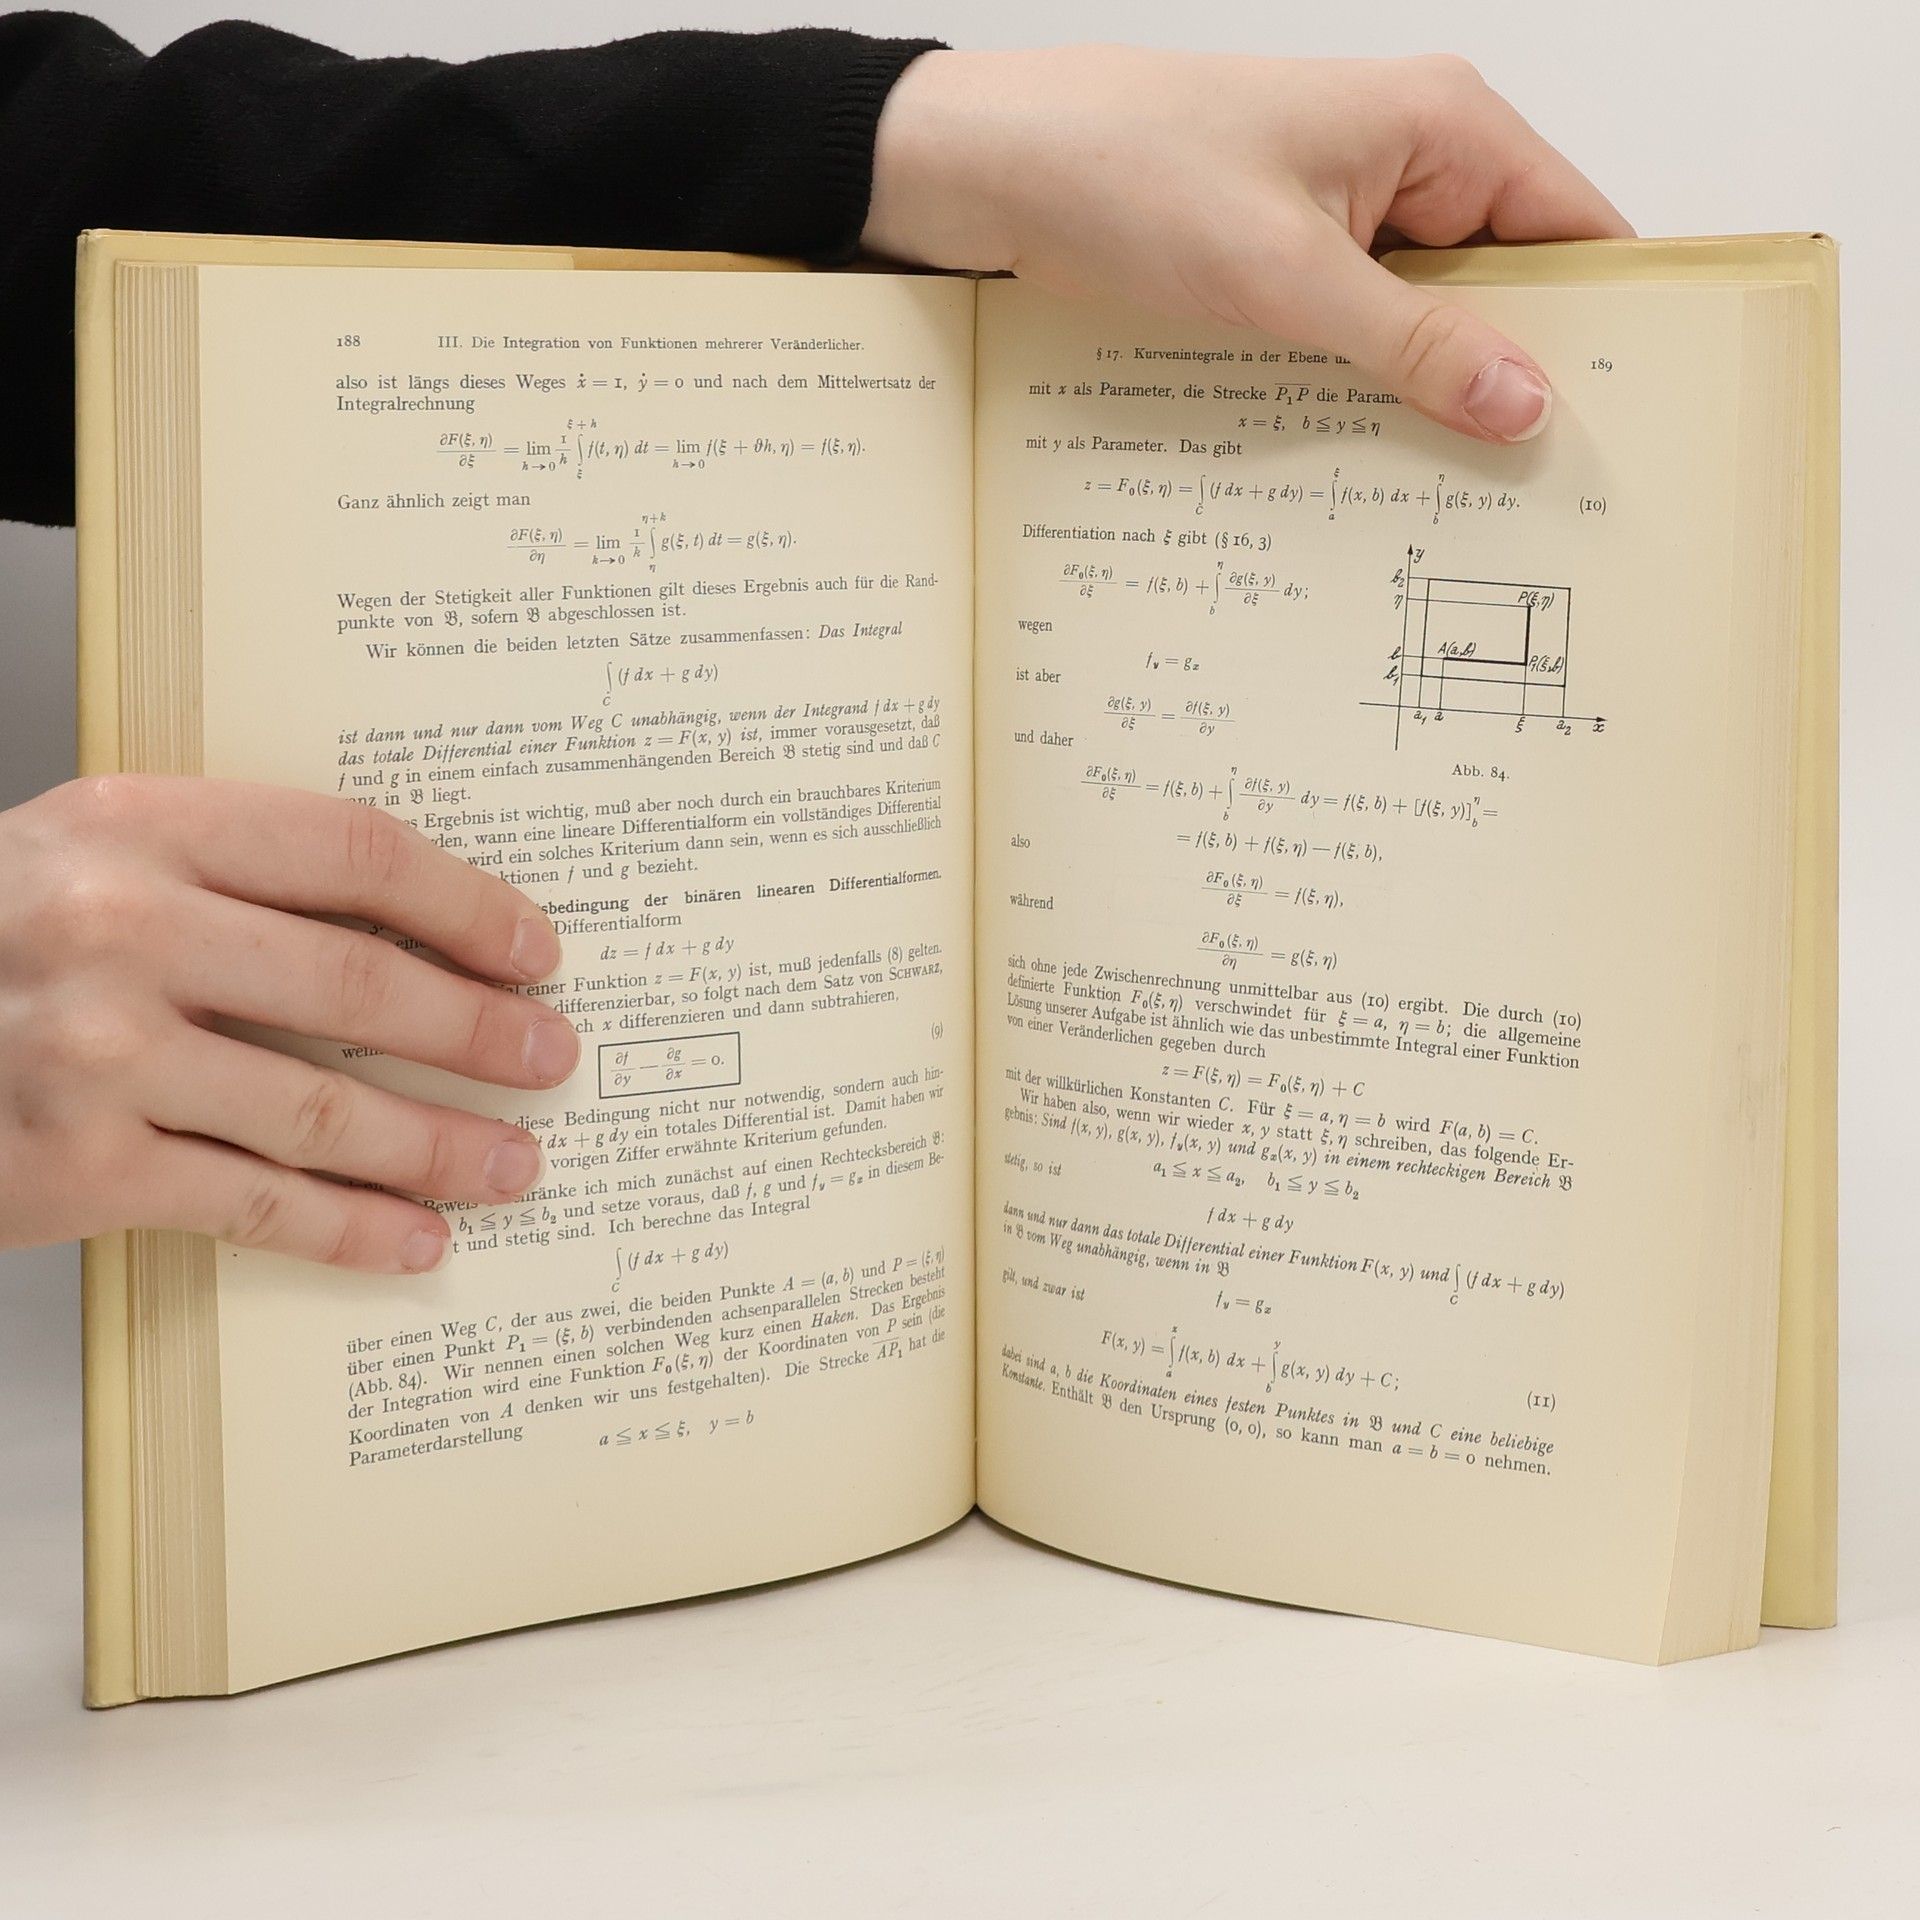 188 III. Die Integration von Funktionen mehrerer Veränderlicher.
also ist längs dieses Weges ẋ = 1, ẏ = 0 und nach dem Mittelwertsatz der
Integralrechnung
∂F(ξ, η)/∂ξ = lim_{h→0} 1/h ∫_ξ^{ξ+h} f(t, η) dt = lim_{h→0} f(ξ + ϑh, η) = f(ξ, η).
Ganz ähnlich zeigt man
∂F(ξ, η)/∂η = lim_{k→0} 1/k ∫_η^{η+k} g(ξ, t) dt = g(ξ, η).
Wegen der Stetigkeit aller Funktionen gilt dieses Ergebnis auch für die Rand-
punkte von 𝔅, sofern 𝔅 abgeschlossen ist.
Wir können die beiden letzten Sätze zusammenfassen: Das Integral
∫_C (f dx + g dy)
ist dann und nur dann vom Weg C unabhängig, wenn der Integrand f dx + g dy
das totale Differential einer Funktion z = F(x, y) ist, immer vorausgesetzt, daß
f und g in einem einfach zusammenhängenden Bereich 𝔅 stetig sind und daß C
in 𝔅 liegt.
Ergebnis ist wichtig, muß aber noch durch ein brauchbares Kriterium
wann eine lineare Differentialform ein vollständiges Differential
wird ein solches Kriterium dann sein, wenn es sich ausschließlich
f und g bezieht.
3. der binären linearen Differentialformen.
Differentialform
dz = f dx + g dy
einer Funktion z = F(x, y) ist, muß jedenfalls (8) gelten.
differenzierbar, so folgt nach dem Satz von SCHWARZ,
x differenzieren und dann subtrahieren,
∂f/∂y − ∂g/∂x = 0. (9)
diese Bedingung nicht nur notwendig, sondern auch hin-
dx + g dy ein totales Differential ist. Damit haben wir
vorigen Ziffer erwähnte Kriterium gefunden.
ich mich zunächst auf einen Rechtecksbereich 𝔅:
b₁ ≦ y ≦ b₂ und setze voraus, daß f, g und f_y = g_x in diesem Be-
und stetig sind. Ich berechne das Integral
∫_C (f dx + g dy)
über einen Weg C, der aus zwei, die beiden Punkte A = (a, b) und P = (ξ, η)
über einen Punkt P₁ = (ξ, b) verbindenden achsenparallelen Strecken besteht
(Abb. 84). Wir nennen einen solchen Weg kurz einen Haken. Das Ergebnis
der Integration wird eine Funktion F₀(ξ, η) der Koordinaten von P sein (die
Koordinaten von A denken wir uns festgehalten). Die Strecke AP₁ hat die
Parameterdarstellung
a ≦ x ≦ ξ, y = b
§ 17. Kurvenintegrale in der Ebene 189
mit x als Parameter, die Strecke P₁P die
x = ξ, b ≦ y ≦ η
mit y als Parameter. Das gibt
z = F₀(ξ, η) = ∫_C (f dx + g dy) = ∫_a^ξ f(x, b) dx + ∫_b^η g(ξ, y) dy. (10)
Differentiation nach ξ gibt (§ 16, 3)
∂F₀(ξ, η)/∂ξ = f(ξ, b) + ∫_b^η ∂g(ξ, y)/∂ξ dy;
wegen
f_y = g_x
ist aber
∂g(ξ, y)/∂ξ = ∂f(ξ, y)/∂y
und daher
y
b₂
η
P(ξ,η)
b
A(a,b)
P₁(ξ,b)
b₁
a₁ a ξ a₂ x
Abb. 84.
∂F₀(ξ, η)/∂ξ = f(ξ, b) + ∫_b^η ∂f(ξ, y)/∂y dy = f(ξ, b) + [f(ξ, y)]_b^η =
= f(ξ, b) + f(ξ, η) — f(ξ, b),
also
∂F₀(ξ, η)/∂ξ = f(ξ, η),
während
∂F₀(ξ, η)/∂η = g(ξ, η)
sich ohne jede Zwischenrechnung unmittelbar aus (10) ergibt. Die durch (10)
definierte Funktion F₀(ξ, η) verschwindet für ξ = a, η = b; die allgemeine
Lösung unserer Aufgabe ist ähnlich wie das unbestimmte Integral einer Funktion
von einer Veränderlichen gegeben durch
z = F(ξ, η) = F₀(ξ, η) + C
mit der willkürlichen Konstanten C. Für ξ = a, η = b wird F(a, b) = C.
Wir haben also, wenn wir wieder x, y statt ξ, η schreiben, das folgende Er-
gebnis: Sind f(x, y), g(x, y), f_y(x, y) und g_x(x, y) in einem rechteckigen Bereich 𝔅
a₁ ≦ x ≦ a₂, b₁ ≦ y ≦ b₂
stetig, so ist
f dx + g dy
dann und nur dann das totale Differential einer Funktion F(x, y) und ∫_C (f dx + g dy)
in 𝔅 vom Weg unabhängig, wenn in 𝔅
f_y = g_x
gilt, und zwar ist
F(x, y) = ∫_a^x f(x, b) dx + ∫_b^y g(x, y) dy + C; (11)
dabei sind a, b die Koordinaten eines festen Punktes in 𝔅 und C eine beliebige
Konstante. Enthält 𝔅 den Ursprung (0, 0), so kann man a = b = 0 nehmen.